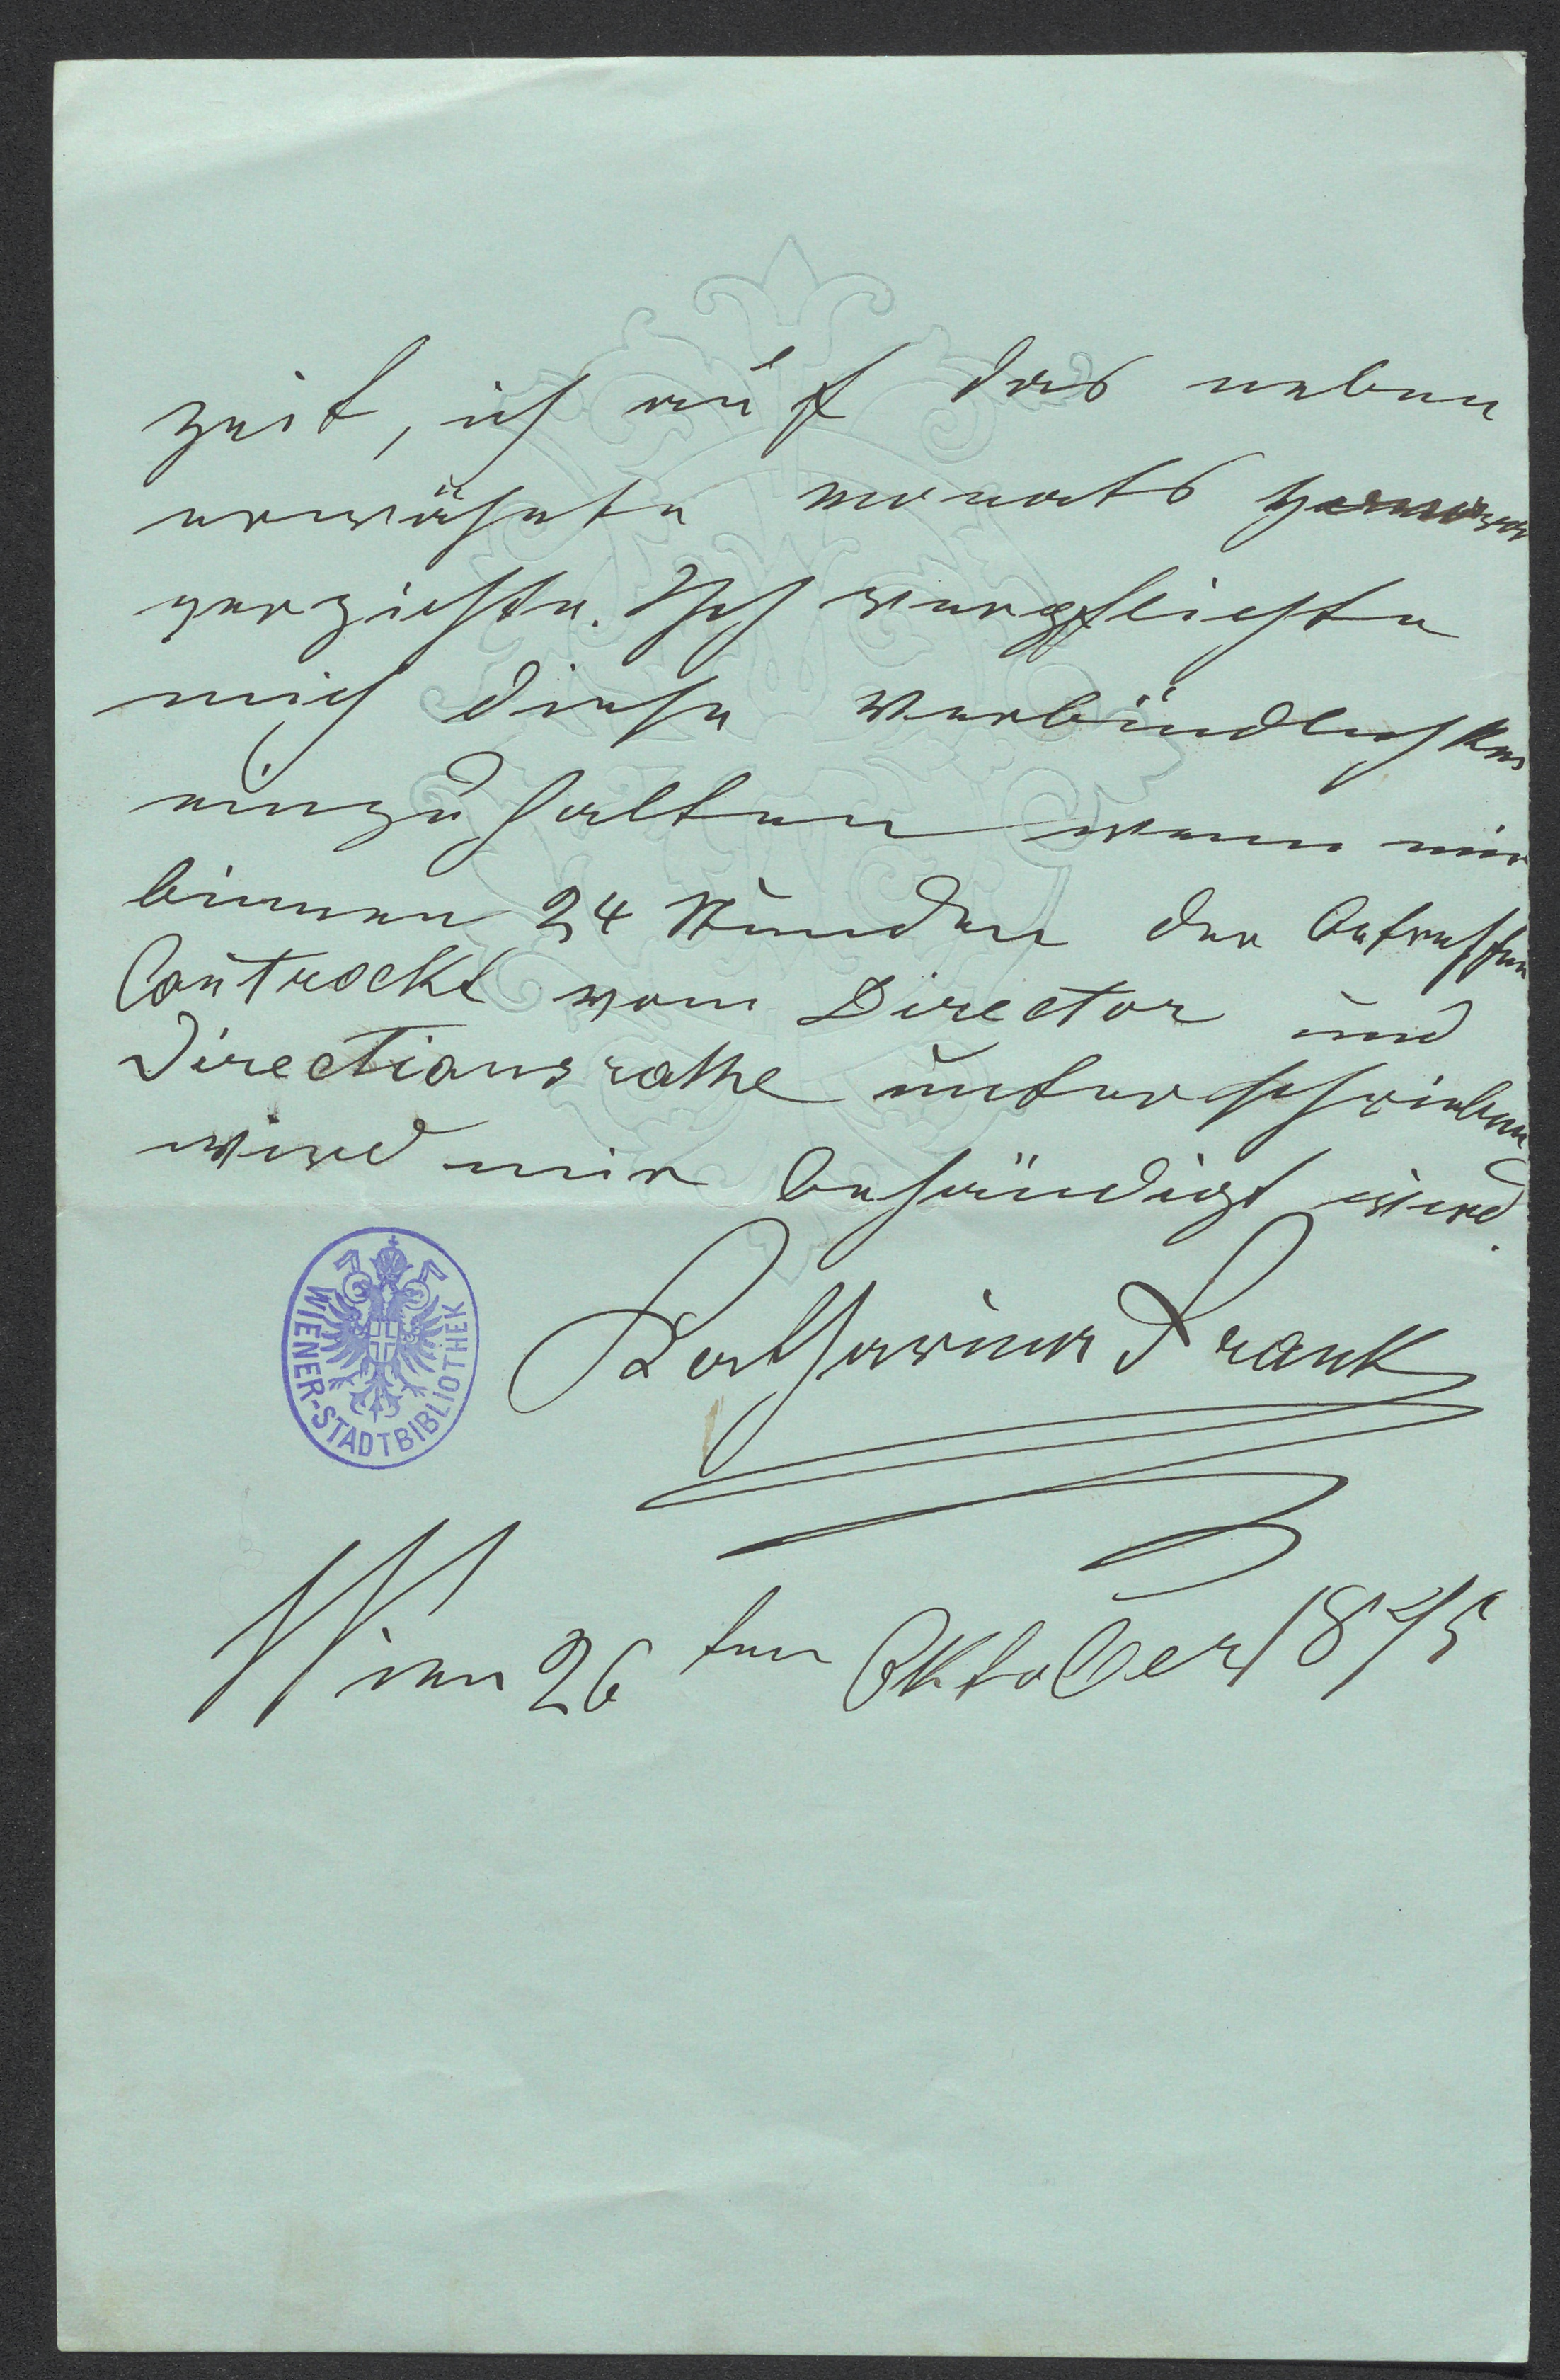 zeit, ich auf das neben
erwähnte monats
verzichte. Ich verpflichte
mich diese Verbindlichkei
einzuhalten wenn mir
binnen 24 Stunden der betreffen
Contrackt vom Director und
Directionsrathe unterschrieben
wird mir behändigt wird.
Katharina Frank
WIENER-STADTBIBLIOTHEK
Wien 26 ten Oktober 1875